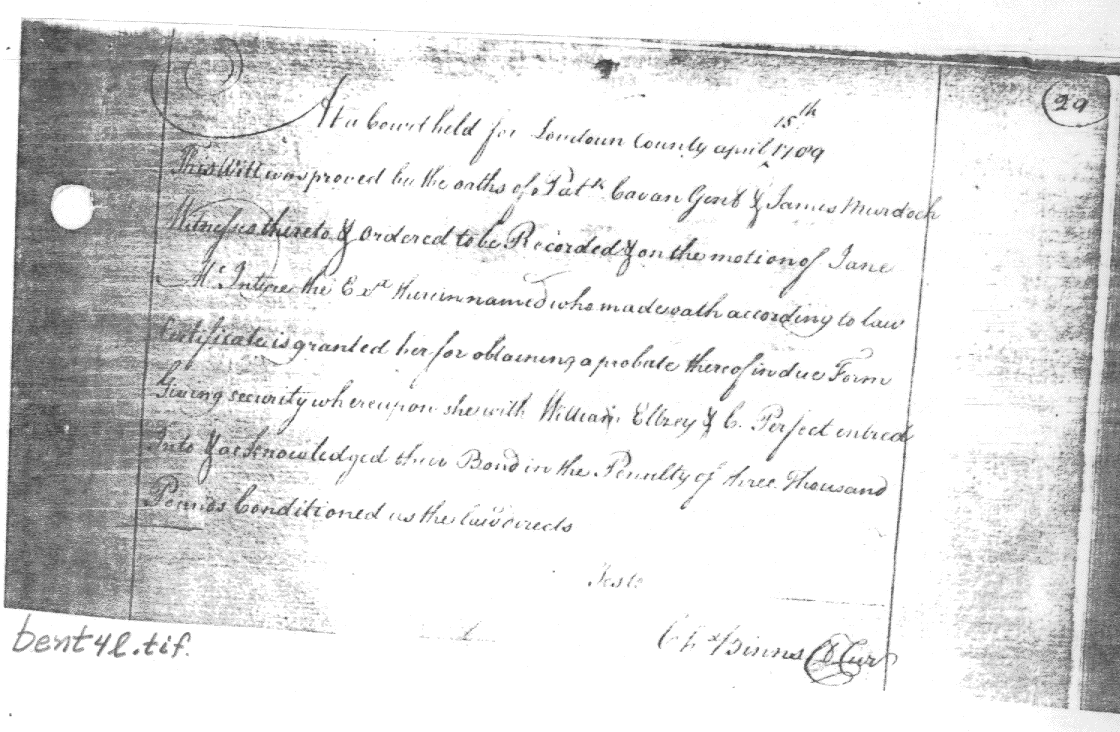 29
At a Court held for Loudoun County april 15th 1789
This Will was proved by the oaths of Patk Cavan Gent & James Murdoch
Witnesses thereto & Ordered to be Recorded & on the motion of Jane
Mc Intire the Exx therein named who made oath according to law
Certificate is granted her for obtaining a probate thereof in due Form
Giving security whereupon she with William Ellzey & C. Perfect entred
Into & acknowledged their Bond in the Penalty of three Thousand
Pounds Conditioned as the law directs
Teste
Chs Binns Cl Cur
bent4l.tif.